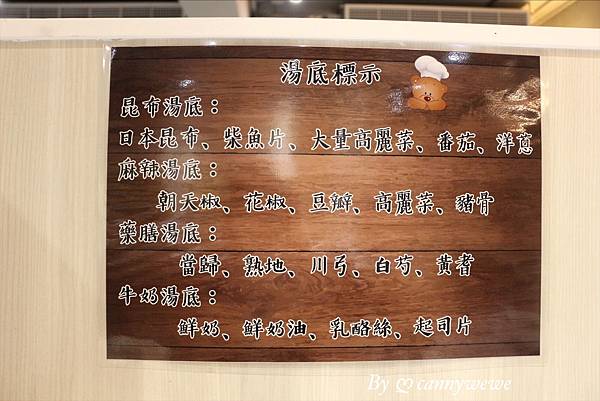 湯底標示
昆布湯底：
日本昆布、柴魚片、大量高麗菜、番茄、洋蔥
麻辣湯底：
朝天椒、花椒、豆瓣、高麗菜、豬骨
藥膳湯底：
當歸、熟地、川弓、白芍、黃耆
牛奶湯底：
鮮奶、鮮奶油、乳酪絲、起司片
By ♡ cannywewe